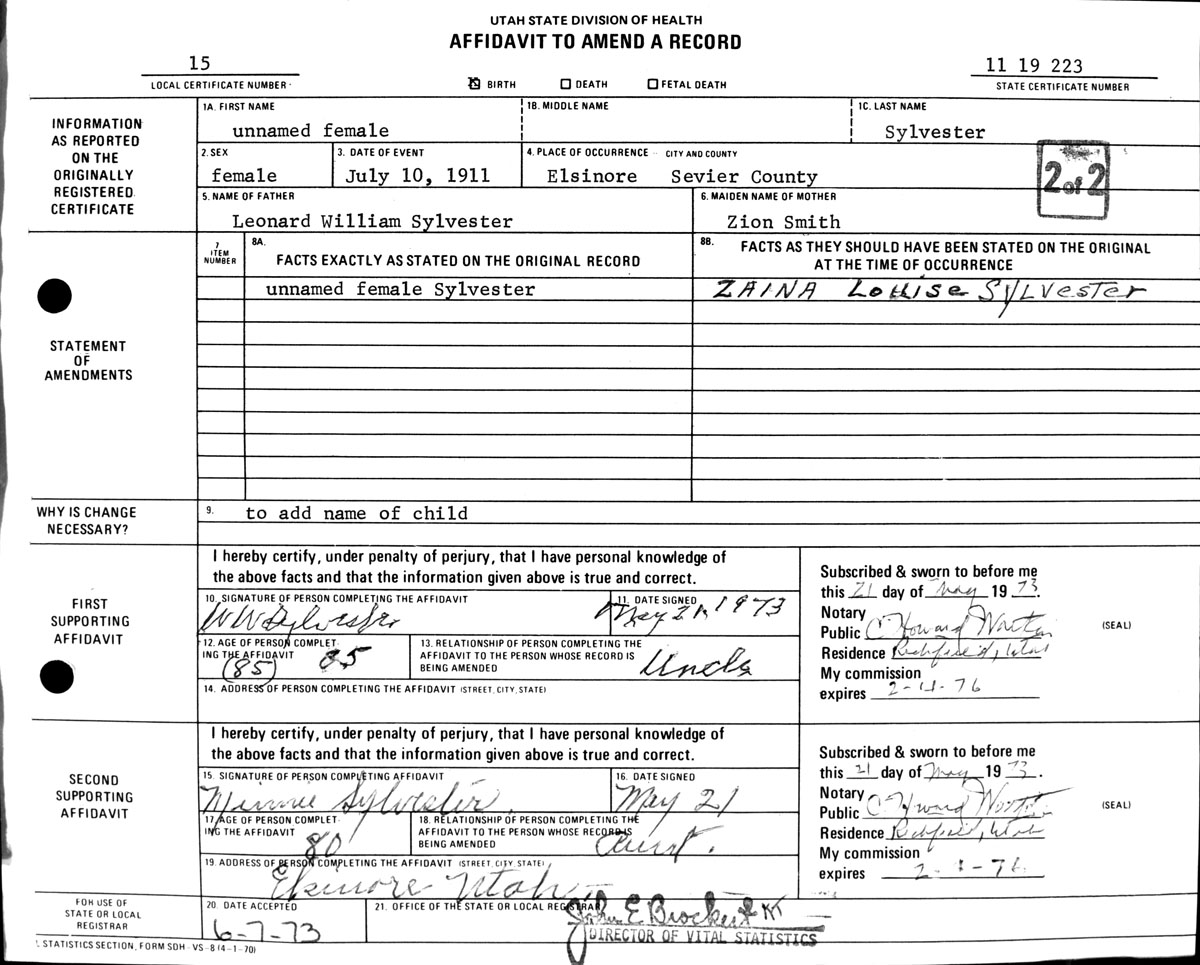 UTAH STATE DIVISION OF HEALTH
AFFIDAVIT TO AMEND A RECORD
15
LOCAL CERTIFICATE NUMBER
☒ BIRTH ☐ DEATH ☐ FETAL DEATH
11 19 223
STATE CERTIFICATE NUMBER
INFORMATION
AS REPORTED
ON THE
ORIGINALLY
REGISTERED
CERTIFICATE
1A. FIRST NAME
unnamed female
1B. MIDDLE NAME
1C. LAST NAME
Sylvester
2. SEX
female
3. DATE OF EVENT
July 10, 1911
4. PLACE OF OCCURRENCE - CITY AND COUNTY
Elsinore Sevier County
2 of 2
5. NAME OF FATHER
Leonard William Sylvester
6. MAIDEN NAME OF MOTHER
Zion Smith
STATEMENT
OF
AMENDMENTS
7
ITEM
NUMBER
8A.
FACTS EXACTLY AS STATED ON THE ORIGINAL RECORD
8B. FACTS AS THEY SHOULD HAVE BEEN STATED ON THE ORIGINAL
AT THE TIME OF OCCURRENCE
unnamed female Sylvester
ZAINA Louise SYLVester
WHY IS CHANGE
NECESSARY?
9. to add name of child
FIRST
SUPPORTING
AFFIDAVIT
I hereby certify, under penalty of perjury, that I have personal knowledge of
the above facts and that the information given above is true and correct.
10. SIGNATURE OF PERSON COMPLETING THE AFFIDAVIT
W W Sylvester
11. DATE SIGNED
May 21, 1973
12. AGE OF PERSON COMPLET-
ING THE AFFIDAVIT
(85) 85
13. RELATIONSHIP OF PERSON COMPLETING THE
AFFIDAVIT TO THE PERSON WHOSE RECORD IS
BEING AMENDED
Uncle
14. ADDRESS OF PERSON COMPLETING THE AFFIDAVIT (STREET, CITY, STATE)
Subscribed & sworn to before me
this 21 day of May 19 73.
Notary
Public C. Howard
Residence Richfield, Utah
My commission
expires 2-11-76
(SEAL)
SECOND
SUPPORTING
AFFIDAVIT
I hereby certify, under penalty of perjury, that I have personal knowledge of
the above facts and that the information given above is true and correct.
15. SIGNATURE OF PERSON COMPLETING AFFIDAVIT
Minnie Sylvester
16. DATE SIGNED
May 21
17. AGE OF PERSON COMPLET-
ING THE AFFIDAVIT
80
18. RELATIONSHIP OF PERSON COMPLETING THE
AFFIDAVIT TO THE PERSON WHOSE RECORD IS
BEING AMENDED
Aunt.
19. ADDRESS OF PERSON COMPLETING THE AFFIDAVIT (STREET, CITY, STATE)
Elsinore Utah
Subscribed & sworn to before me
this 21 day of May 19 73.
Notary
Public C. Howard
Residence Richfield, Utah
My commission
expires
(SEAL)
FOR USE OF
STATE OR LOCAL
REGISTRAR
20. DATE ACCEPTED
6-7-73
21. OFFICE OF THE STATE OR LOCAL REGISTRAR
John E Brockert
DIRECTOR OF VITAL STATISTICS
STATISTICS SECTION, FORM SDH - VS - 8 (4-1-70)